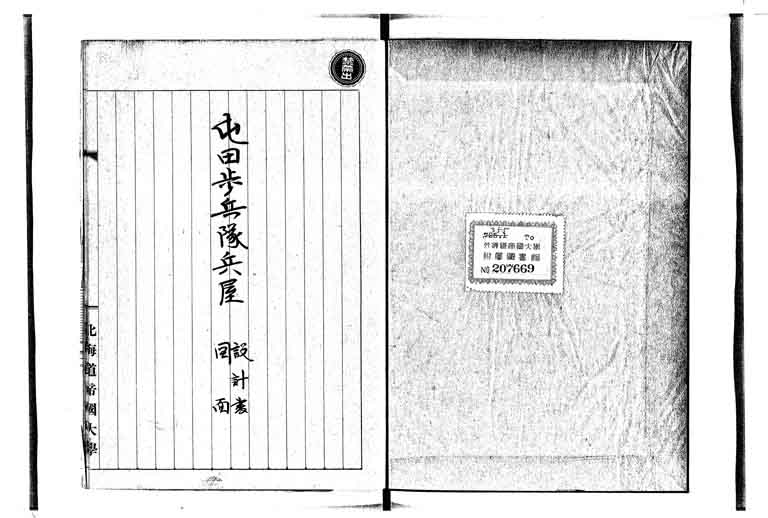 禁帯出
屯田歩兵隊兵屋
設計書
図面
北海道帝國大學
355
TO
北海道帝國大學
附屬圖書館
No 207669